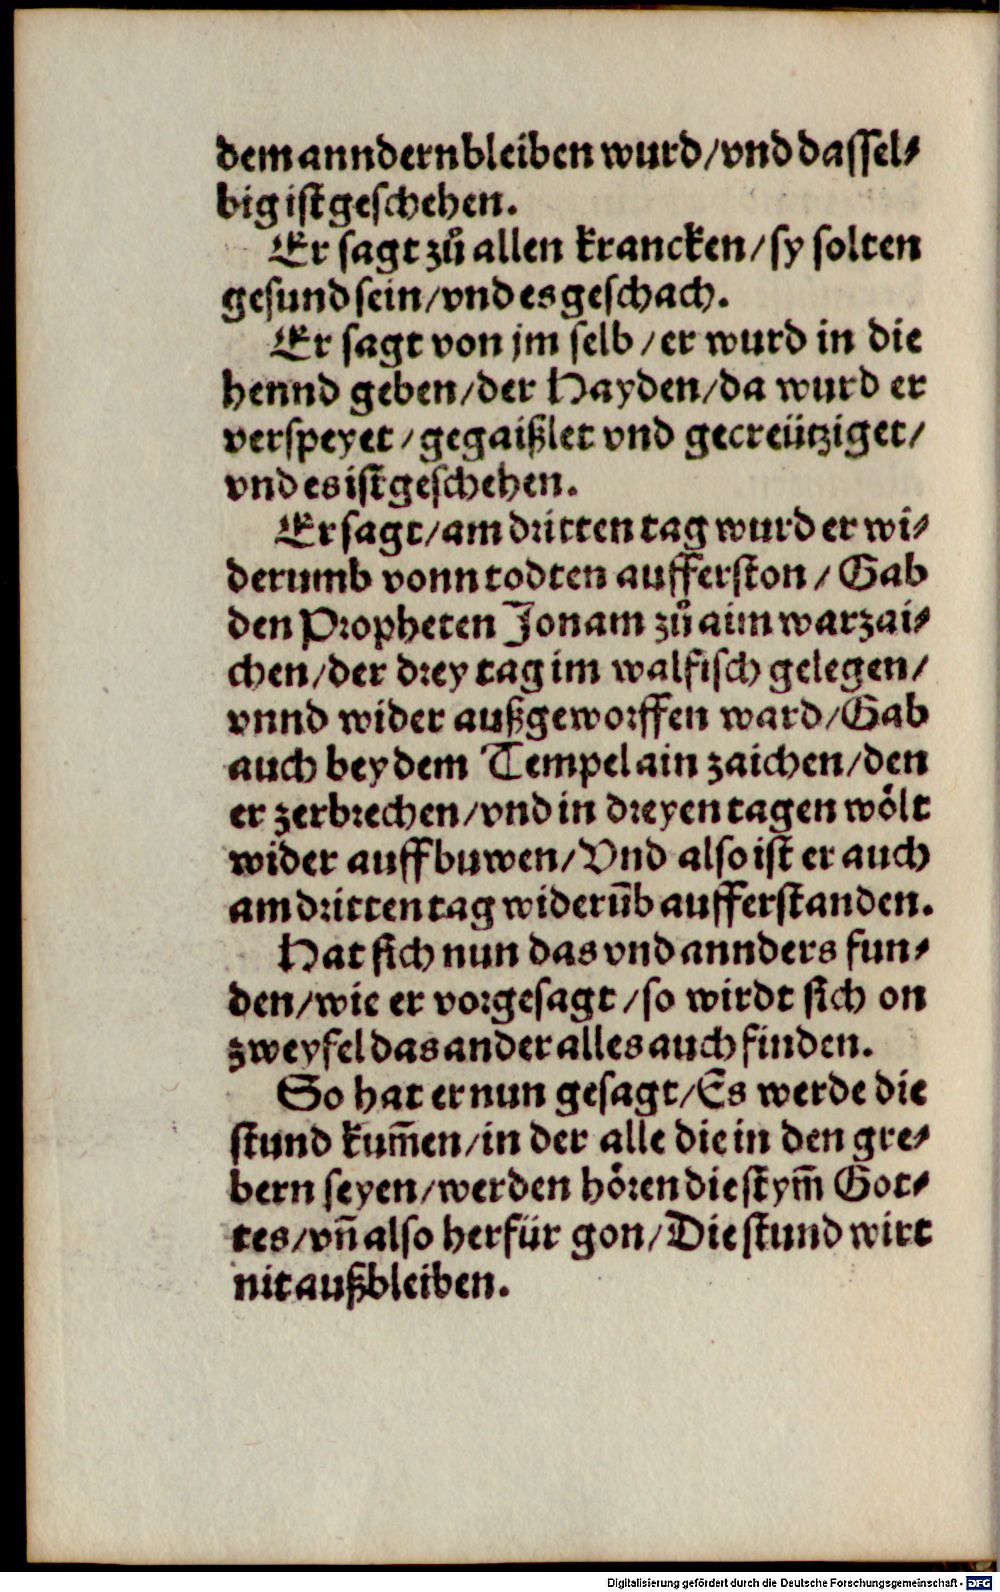 dem anndern bleiben wurd/vnd dassel⸗
big ist geschehen.
Er sagt zů allen krancken/sy solten
gesund sein/vnd es geschach.
Er sagt von jm selb/er wurd in die
hennd geben/der Hayden/da wurd er
verspeyet/gegaißlet vnd gecreütziget/
vnd es ist geschehen.
Er sagt/am dritten tag wurd er wi⸗
derumb vonn todten aufferston/Gab
den Propheten Jonam zů aim warzai⸗
chen/der drey tag im walfisch gelegen/
vnnd wider außgeworffen ward/Gab
auch bey dem Tempel ain zaichen/den
er zerbrechen/vnd in dreyen tagen wölt
wider auffbuwen/Vnd also ist er auch
am dritten tag widerūb aufferstanden.
Hat sich nun das vnd annders fun⸗
den/wie er vorgesagt/so wirdt sich on
zweyfel das ander alles auch finden.
So hat er nun gesagt/Es werde die
stund kum̄en/in der alle die in den gre⸗
bern seyen/werden hören die stym̄ Got⸗
tes/vn̄ also herfür gon/Die stund wirt
nit außbleiben.
Digitalisierung gefördert durch die Deutsche Forschungsgemeinschaft - DFG